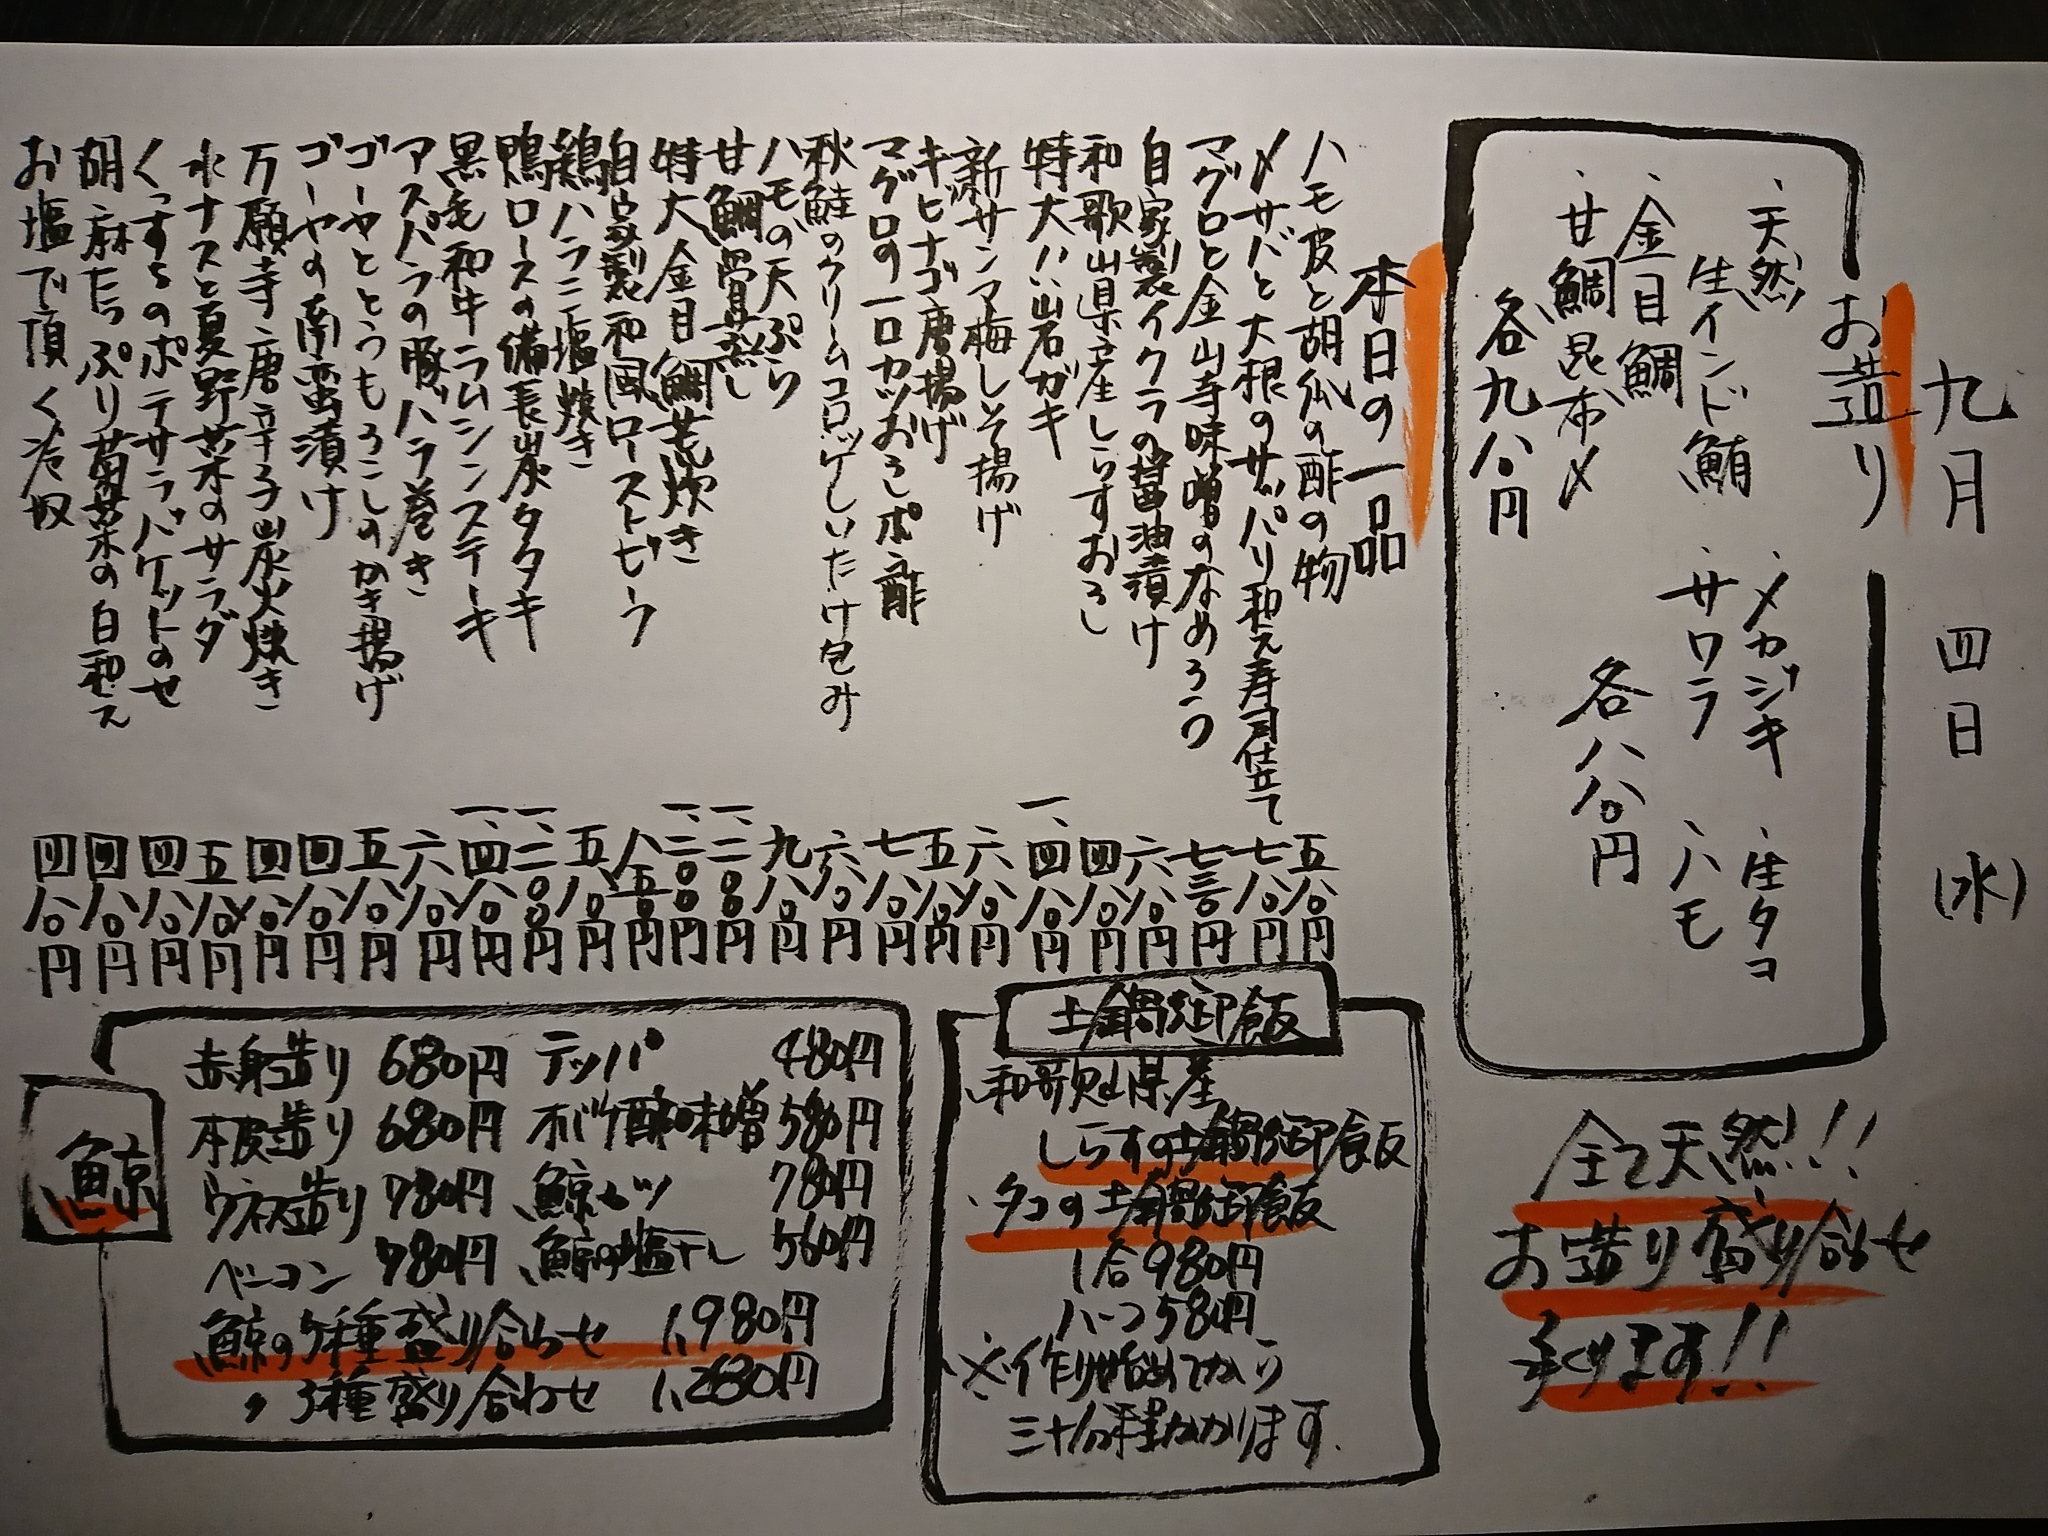 九月 四日 (水)
お造り
、天然
生インド鮪
、金目鯛
、甘鯛昆布〆
各九八〇円
、メカジキ
、サワラ
、生タコ
、ハモ
各八八〇円
全て天然!!
お造り盛り合せ
承ります!!
本日の一品
ハモ皮と胡瓜の酢の物 五八〇円
〆サバと大根のサッパリ和え寿司仕立て 七八〇円
マグロと金山寺味噌のなめろう 七三〇円
自家製イクラの醤油漬け 六八〇円
和歌山県産しらすおろし 四八〇円
特大岩ガキ 一、四八〇円
新サンマ梅しそ揚げ 六八〇円
キビナゴ唐揚げ 五八〇円
マグロの一口カツおろしポン酢 七八〇円
秋鮭のクリームコロッケしいたけ包み 六八〇円
ハモの天ぷら 九八〇円
甘鯛骨蒸し 一、二〇〇円
特大金目鯛荒炊き 一、三〇〇円
自家製和風ローストビーフ 八五〇円
鶏ハラミ塩焼き 五八〇円
鴨ロースの備長炭タタキ 一、二〇〇円
黒毛和牛ラムシンステーキ 一、四八〇円
アスパラの豚バラ巻き 六八〇円
ゴーヤととうもろこしのかき揚げ 五八〇円
ゴーヤの南蛮漬け 四八〇円
万願寺唐辛子炭火焼き 四八〇円
水ナスと夏野菜のサラダ 五八〇円
くっすちのポテサラバケットのせ 四八〇円
胡麻たっぷり菊菜の白和え 四八〇円
お塩で頂く冷奴 四八〇円
土鍋御飯
、和歌山県産
しらすの土鍋御飯
、タコの土鍋御飯
1合980円
ハーフ580円
※作り始めてから
三十分程かかります。
鯨
赤身造り 680円 テッパ 480円
本皮造り 680円 オバケ酢味噌 580円
ウネス造り 780円 鯨カツ 780円
ベーコン 780円 鯨の塩干し 560円
鯨の5種盛り合わせ 1,980円
〃 3種盛り合わせ 1,280円